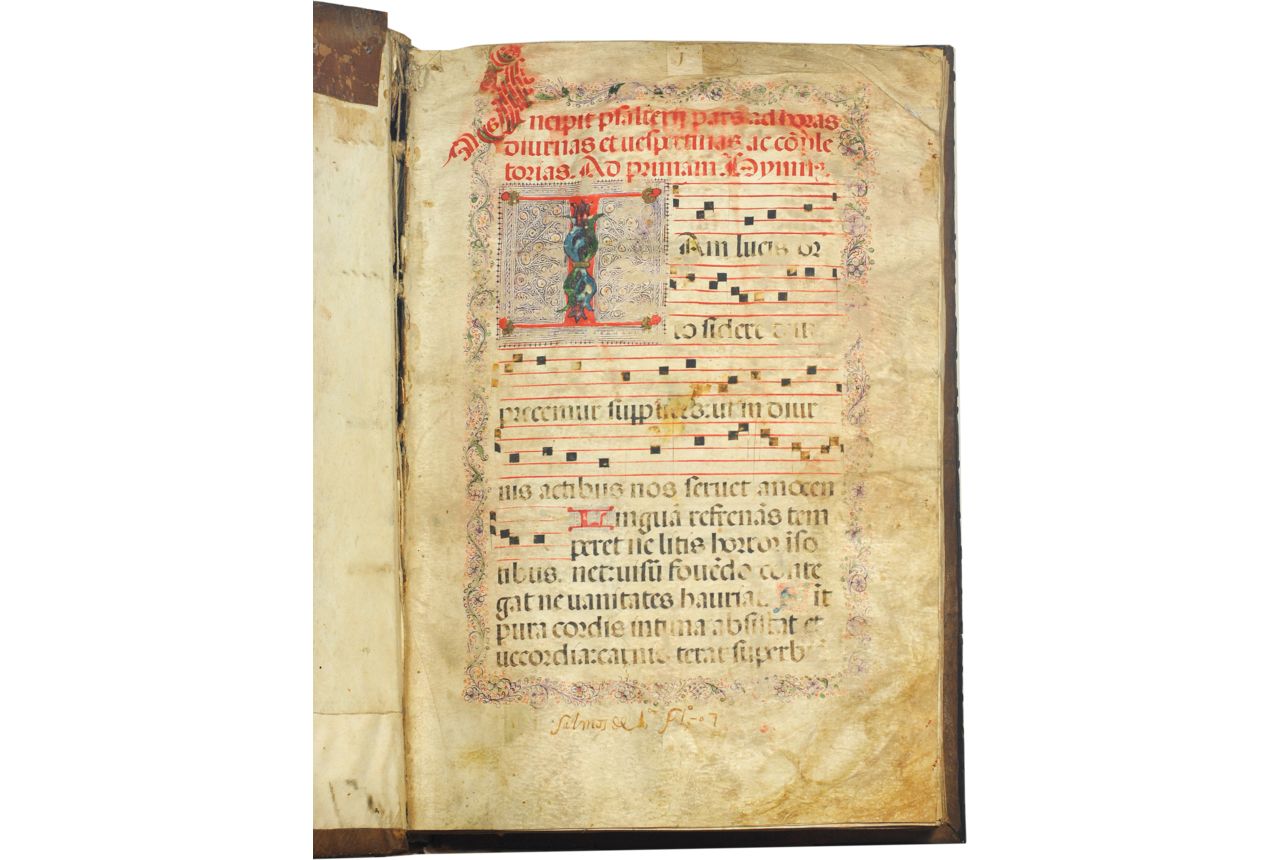 Incipit psalterij pars ad horas
diurnas et uespertinas ac cõple
torias. Ad primam. Hymnus.
IAm lucis or
to sidere deum
precemur supplices: ut in diur
nis actibus nos seruet a nocen
Linguã refrenãs tem
peret ne litis horror ĩso
tibus. net: uisũ fouẽdo conte
gat ne uanitates hauriat. Sĩt
pura cordis intima absistat et
uecordia: carnis terat superbi
salmos de